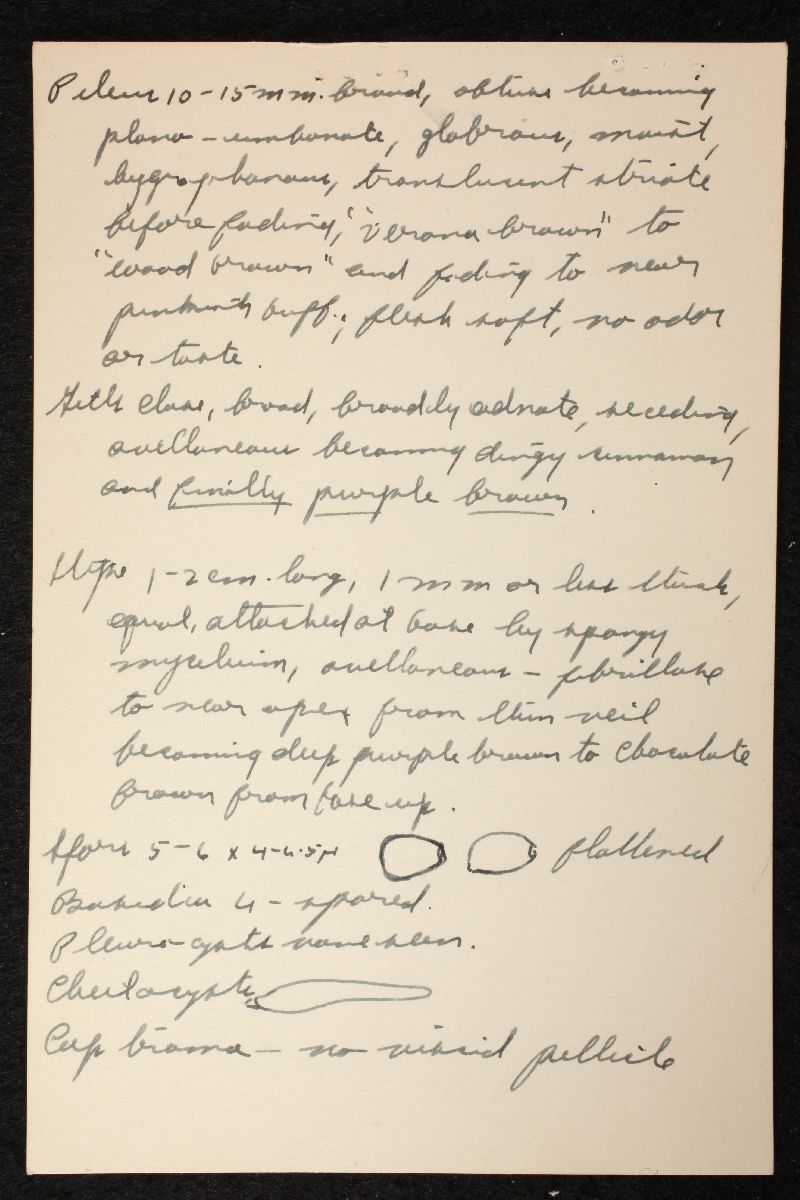 Pileus 10-15 mm. broad, obtuse becoming
plano-umbonate, glabrous, moist,
hygrophanous, translucent striate
before fading, "verona brown" to
"wood brown" and fading to near
pinkish buff.; flesh soft, no odor
or taste.
Gills close, broad, broadly adnate, seceding,
avellaneous becoming dingy cinnamon
and finally purple brown.
Stipe 1-2 cm. long, 1 mm or less thick,
equal, attached at base by spongy
mycelium, avellaneous - fibrillose
to near apex from thin veil
becoming deep purple brown to chocolate
brown from base up.
Spores 5-6 x 4-4.5μ flattened
Basidia 4-spored.
Pleurocysts none seen.
Cheilocysts
Cap trama - no viscid pellicle